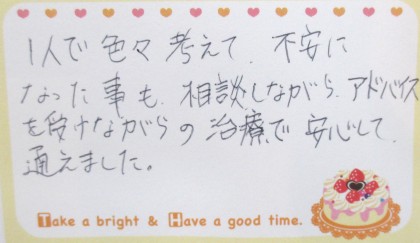 1人で色々考えて、不安に
なった事も、相談しながら、アドバイス
を受けながらの治療で安心して
通えました。
Take a bright & Have a good time.